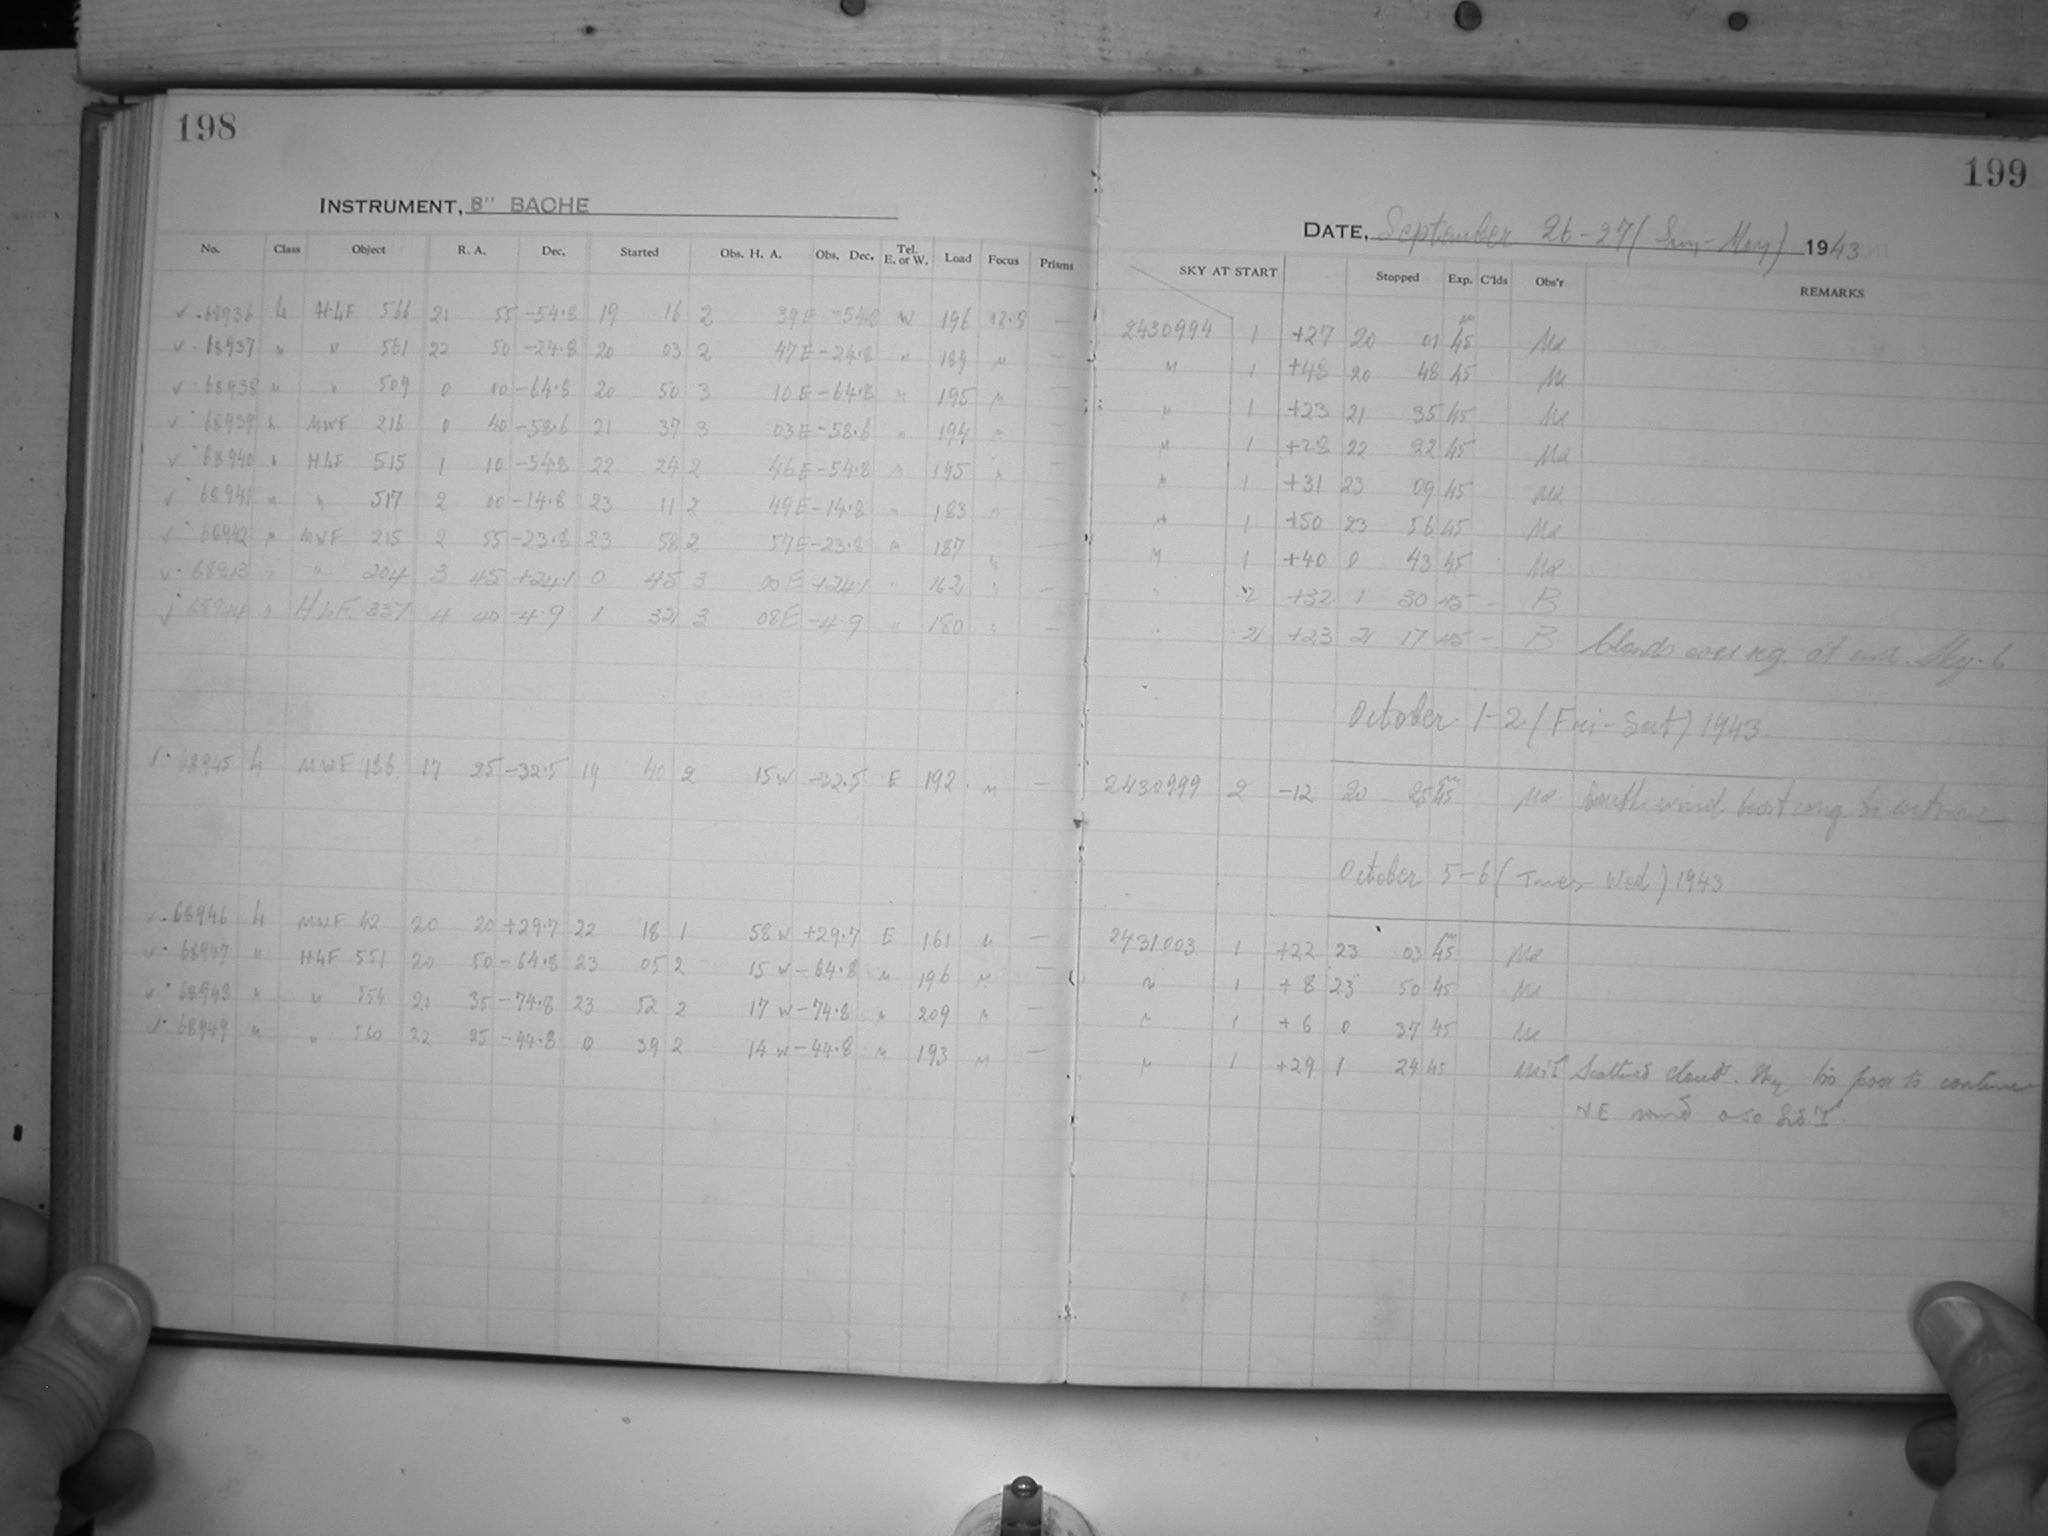 198
INSTRUMENT, 8" BACHE
No. Class Object R. A. Dec. Started Obs. H. A. Obs. Dec. Tel. E. or W. Load Focus Prisms
68936 H&F 566 21 55 -54.8 19 16 2 39E -54.8 W 196 12.8 —
68937 " " 561 22 50 -24.8 20 03 2 47E -24.8 " 189 " —
68938 " " 509 0 10 -64.8 20 50 3 10E -64.8 " 195 " —
68939 MWF 216 0 40 -58.6 21 37 3 03E -58.6 " 194 " —
68940 " H&F 515 1 10 -54.8 22 24 2 46E -54.8 " 195 " —
68941 " " 517 2 00 -14.8 23 11 2 49E -14.8 " 183 " —
68942 " MWF 215 2 55 -23.8 23 58 2 57E -23.8 " 187 " —
68943 " " 204 3 45 +24.1 0 45 3 00E +24.1 " 162 " —
68944 " H&F. 337 4 40 -4.9 1 32 3 08E -4.9 " 180 " —
68945 MWF 186 17 25 -32.5 19 40 2 15W -32.5 E 192 " —
68946 MWF 42 20 20 +29.7 22 18 1 58W +29.7 E 161 " —
68947 " H&F 551 20 50 -64.8 23 05 2 15W -64.8 " 196 " —
68948 " " 554 21 35 -74.8 23 52 2 17W -74.8 " 209 " —
68949 " " 560 22 25 -44.8 0 39 2 14W -44.8 " 193 " —
199
DATE, September 26-27 (Sun-Mon) 1943
SKY AT START Stopped Exp. C'lds Obs'r REMARKS
2430994 1 +27 20 01 45 Ma
" 1 +48 20 48 45 Ma
" 1 +23 21 35 45 Ma
" 1 +28 22 22 45 Ma
" 1 +31 23 09 45 Ma
" 1 +50 23 56 45 Ma
" 1 +40 0 43 45 Ma
" 2 +32 1 30 45 - B
" 2 +23 2 17 45 - B Clouds over reg. at end. Sky. 6
October 1-2 (Fri-Sat) 1943
2430999 2 -12 20 25 45 Ma. South wind too strong to continue
October 5-6 (Tues Wed) 1943
2431003 1 +22 23 03 45 Ma
" 1 +8 23 50 45 Ma
" 1 +6 0 37 45 Ma
" 1 +29 1 24 45 Scattered clouds. Sky too poor to continue
NE wind also